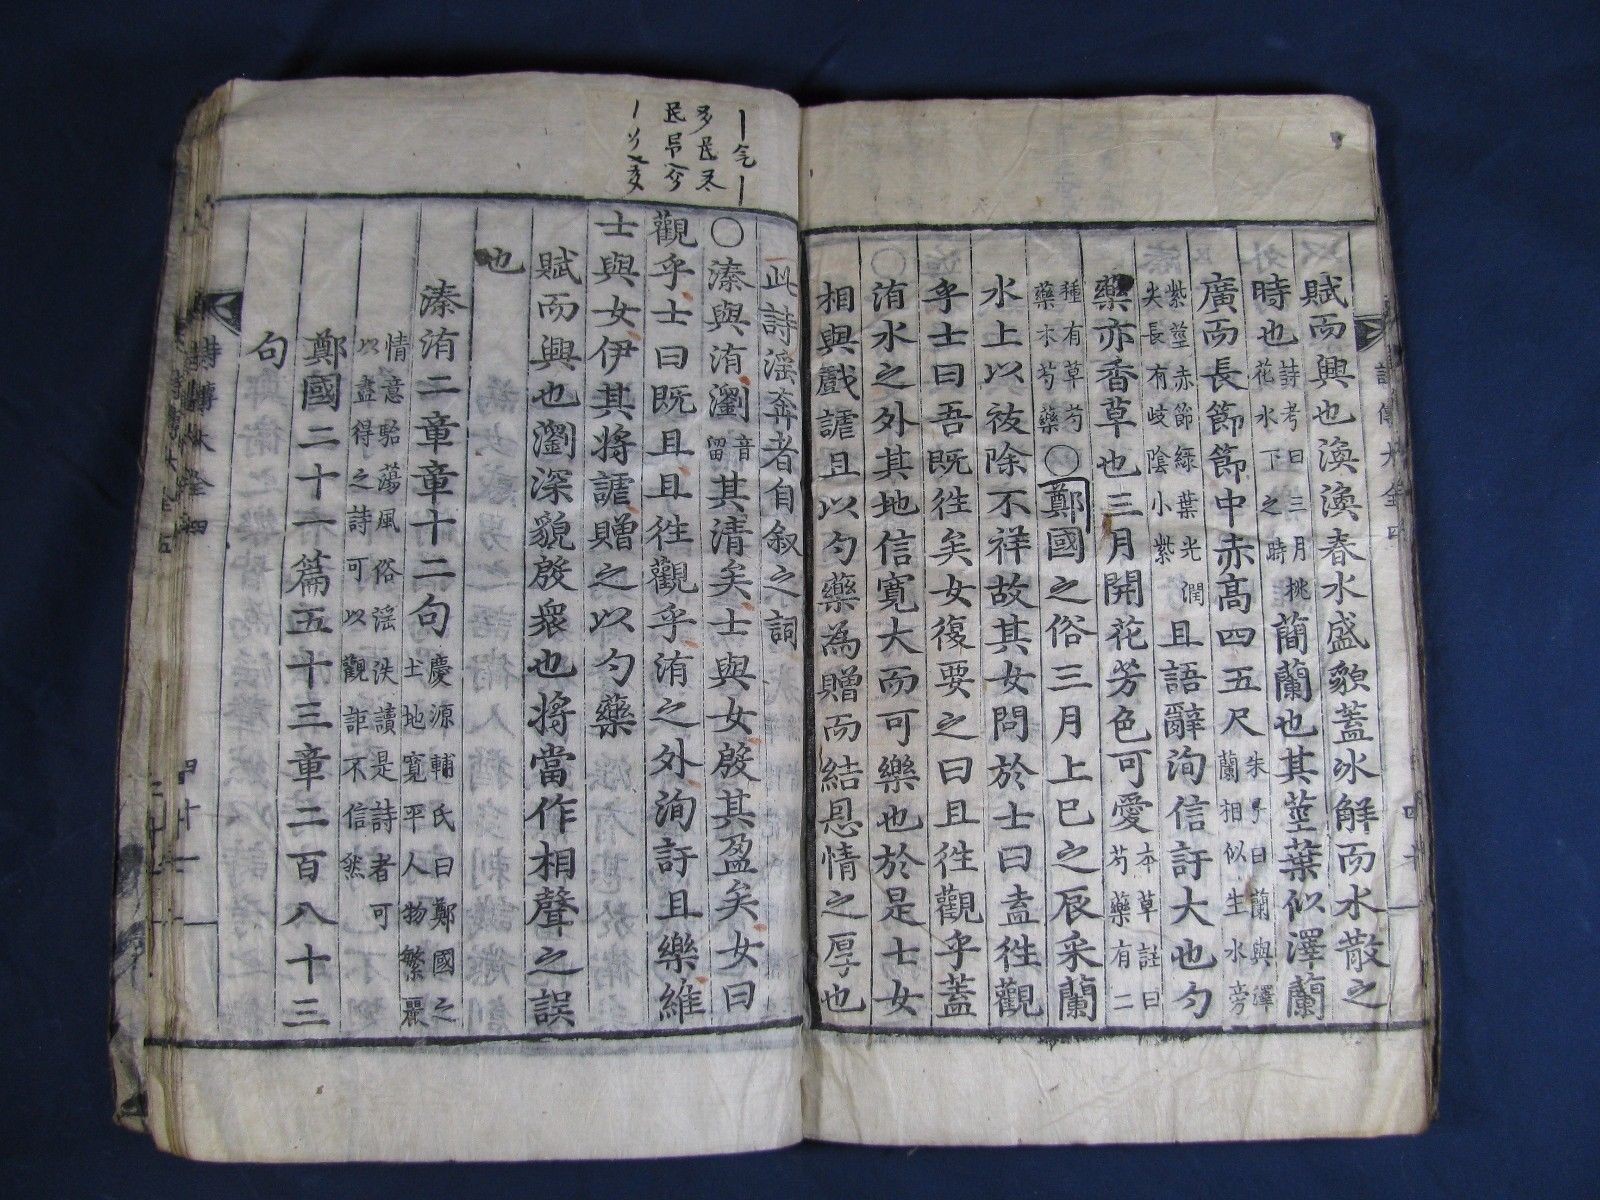 賦而興也渙渙春水盛貌蓋冰解而水散之
時也詩考曰三月桃花水下之時蕑蘭也其莖葉似澤蘭
廣而長節節中赤高四五尺朱子曰蘭與澤蘭相似生水旁
紫莖赤節綠葉光潤尖長有岐陰小紫且語辭洵信訏大也勺
藥亦香草也三月開花芳色可愛本草註曰芍藥有二
種有草芍藥木芍藥○鄭國之俗三月上巳之辰采蘭
水上以祓除不祥故其女問於士曰盍徃觀
乎士曰吾既徃矣女復要之曰且徃觀乎蓋
洧水之外其地信寛大而可樂也於是士女
相與戲謔且以勺藥為贈而結恩情之厚也
此詩滛奔者自叙之詞
○溱與洧瀏音留其清矣士與女殷其盈矣女曰
觀乎士曰既且且徃觀乎洧之外洵訏且樂維
士與女伊其將謔贈之以勺藥
賦而興也瀏深貌殷衆也將當作相聲之誤
也
溱洧二章章十二句慶源輔氏曰鄭國之土地寛平人物繁麗
情意駘蕩風俗滛泆讀是詩者可以盡得之詩可以觀詎不信然
鄭國二十一篇五十三章二百八十三
句
詩傳大全四
四十一